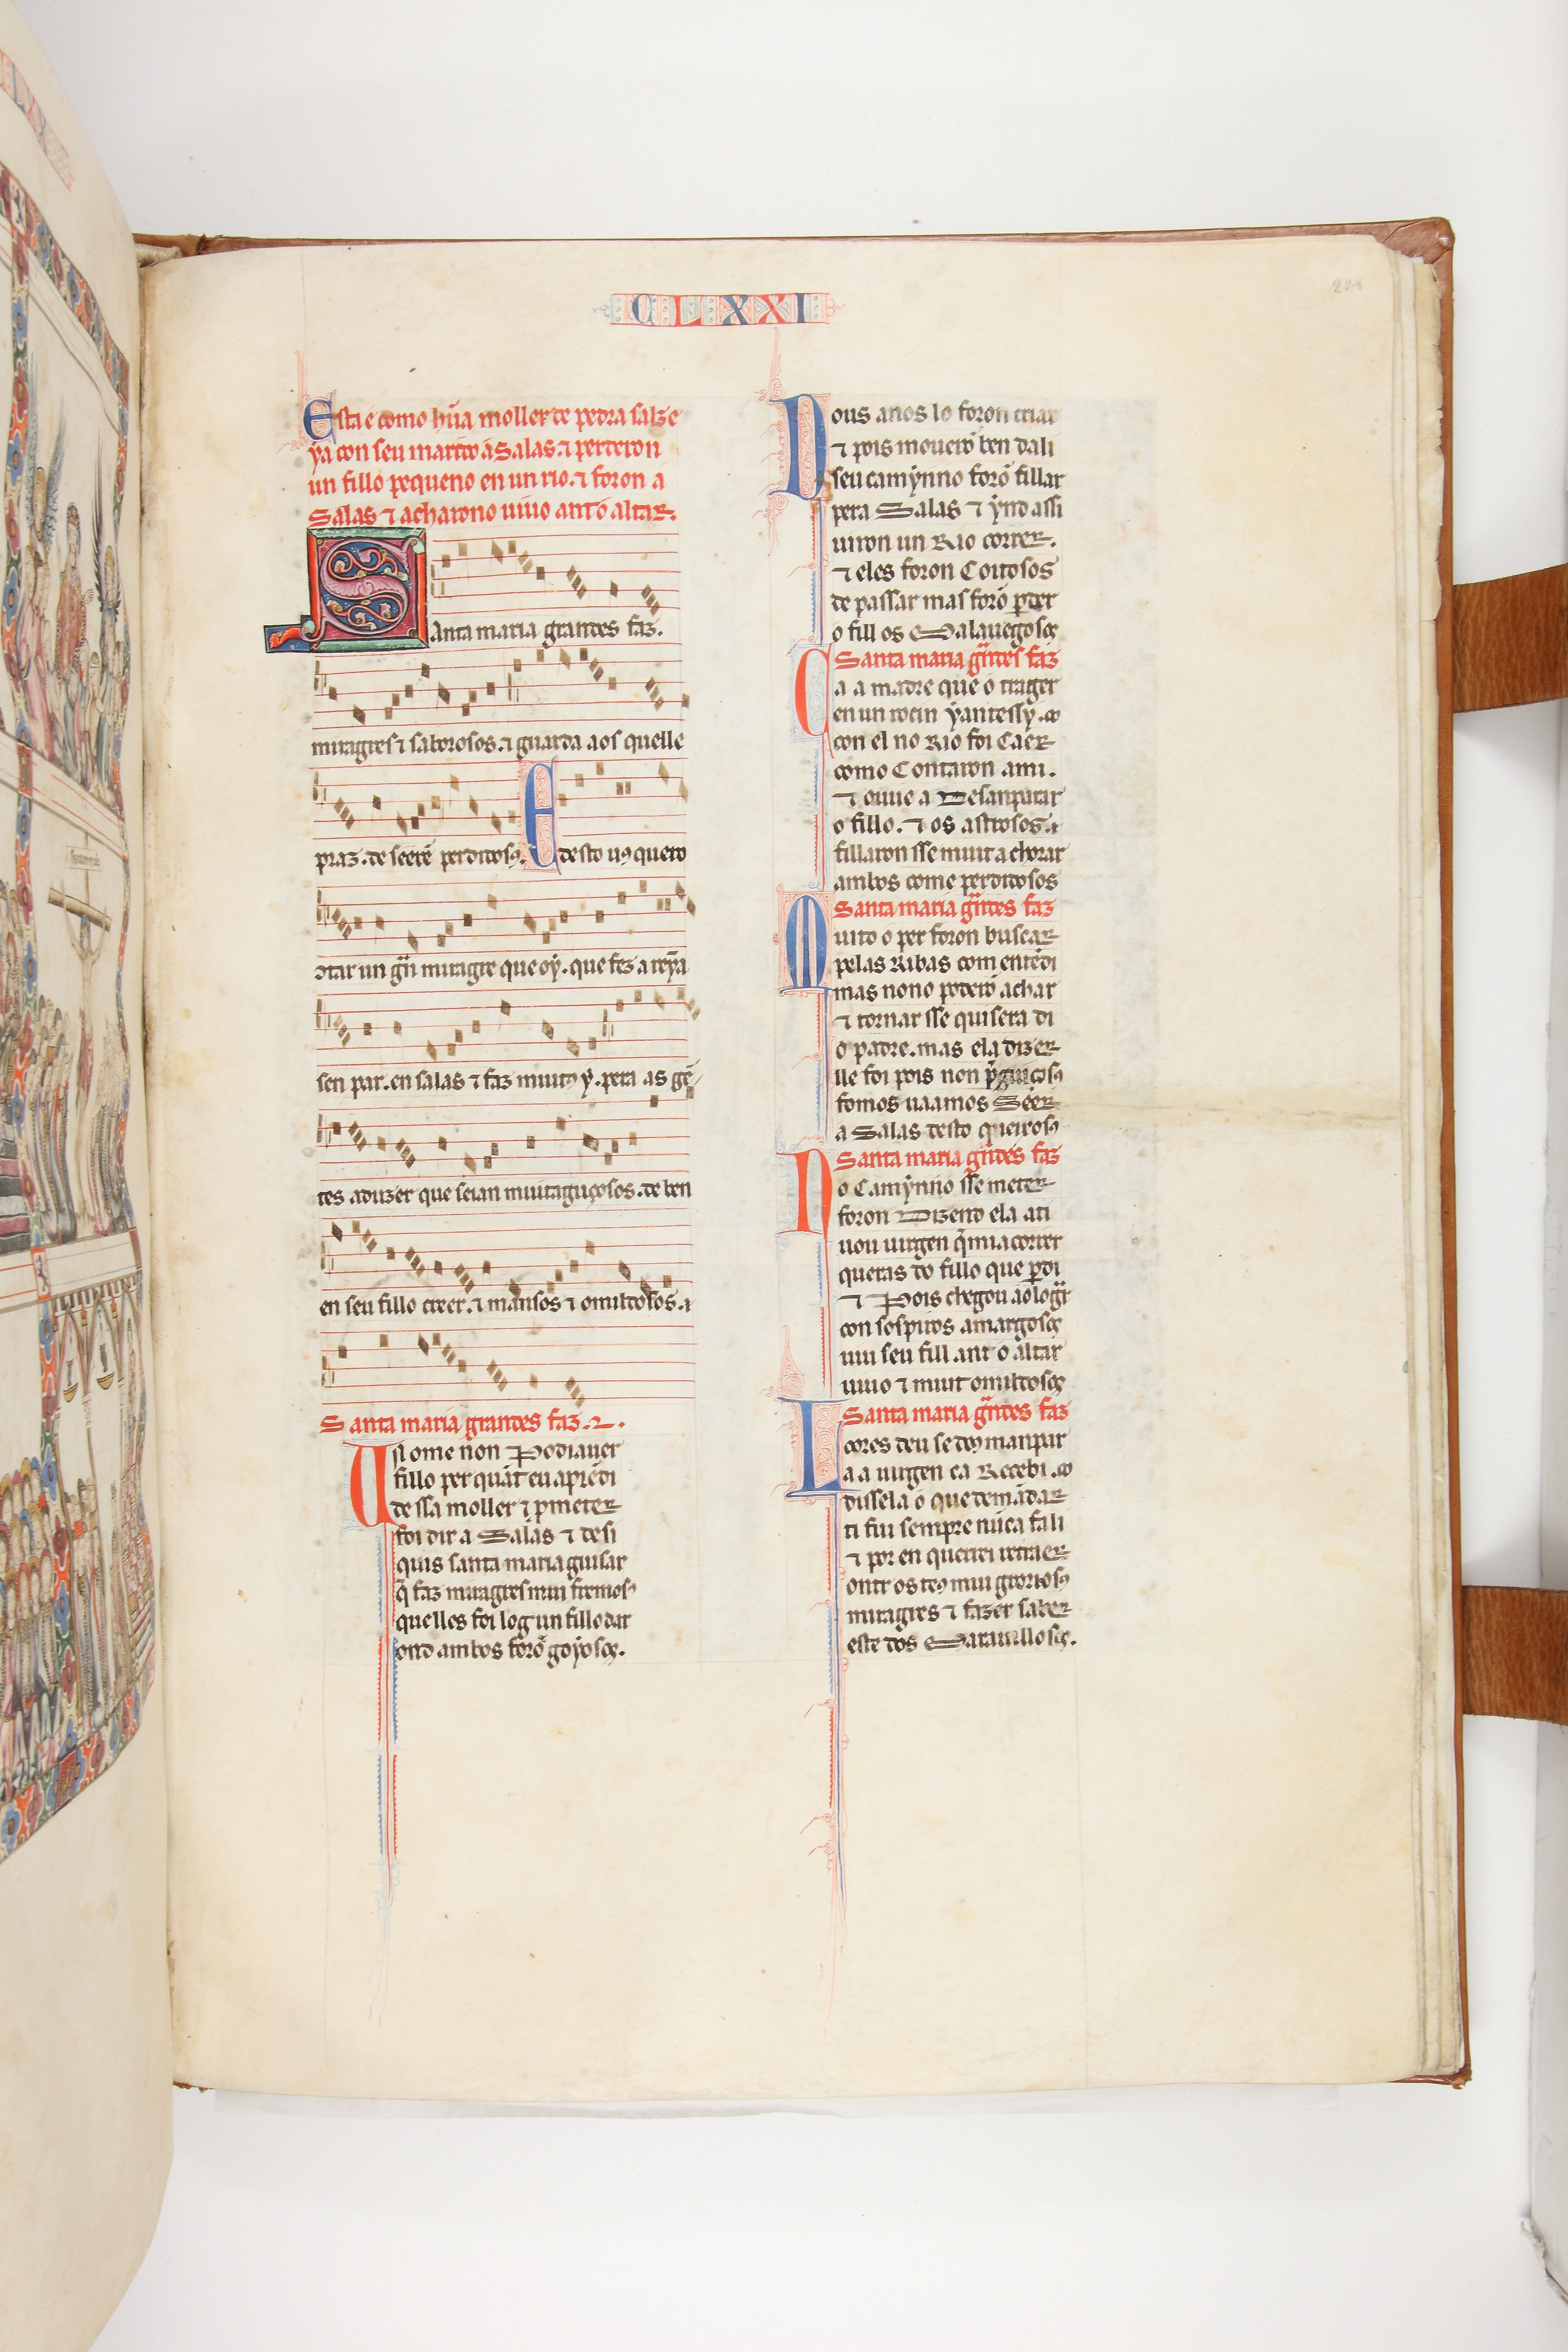 CLXXI
Esta e como hũa moller de pedra salze
ya con seu marido a Salas. ⁊ perderon
un fillo pequeno en un rio. ⁊ foron a
Salas ⁊ acharono uiuo ant o altar.
Santa maria grandes faz.
miragres ⁊ saborosos. ⁊ guarda aos quelle
praz. de seerẽ perdidosꝯ. E desto uꝯ quero
ↄtar un gñ miragre que oý. que fez a reỹa
sen par. en salas ⁊ faz muitꝯ ý. pera as gẽ
tes aduzer que seian muit aguçosos. de ben
en seu fillo creer. ⁊ mansos ⁊ omildosos. ⁊
Santa maria grandes faz.
Un ome non Podiauer
fillo per quãt eu aprẽdi
de ssa moller ⁊ pmeter
foi dir a Salas ⁊ desi
quis santa maria guisar
q̃ faz miragres mui fremosꝯ
quelles foi log un fillo dar
ond ambos forõ goýosꝯ.
Dous anos lo foron criar
⁊ pois mouerõ ben dali
seu camýnno forõ fillar
pera Salas ⁊ ýnd assi
uiron un Rio correr.
⁊ eles foron Coitosos
de passar mas forõ pder
o fill os Malauegosꝯ
Santa maria gñdes faz
Ca a madre que o trager
en un rocin ýant essý. ⁊
con el no Rio foi Caer
como Contaron a mi.
⁊ ouue a Desanparar
o fillo. ⁊ os astrosos. ⁊
fillaron sse muit a chorar
ambos come perdidosos
Santa maria gñdes faz
Muito o per foron buscar
pelas Ribas com entẽdi
mas nono poderõ achar
⁊ tornar sse quisera di
o padre. mas ela dizer
lle foi pois non pguiçosꝯ
fomos uaamos Séér
a Salas desto queixosꝯ
Santa maria gñdes faz
No Camýnno sse meter
foron Dizend ela a ti
uou uirgen q̃ mia correr
queras do fillo que pdi
⁊ Pois chegou ao logar
con sospiros amargosꝯ
uiu seu fill ant o altar
uiuo ⁊ muit omildosꝯ
Santa maria gñdes faz
Loores deu se dꝯ manpar
a a uirgen ca Recebi. ⁊
dissela o que demãdar
ti fui sempre nũca fali
⁊ por en quer ti retraer
ontr os teꝯ mui groriosꝯ
miragres ⁊ fazer saber
este dos Marauillosꝯ.